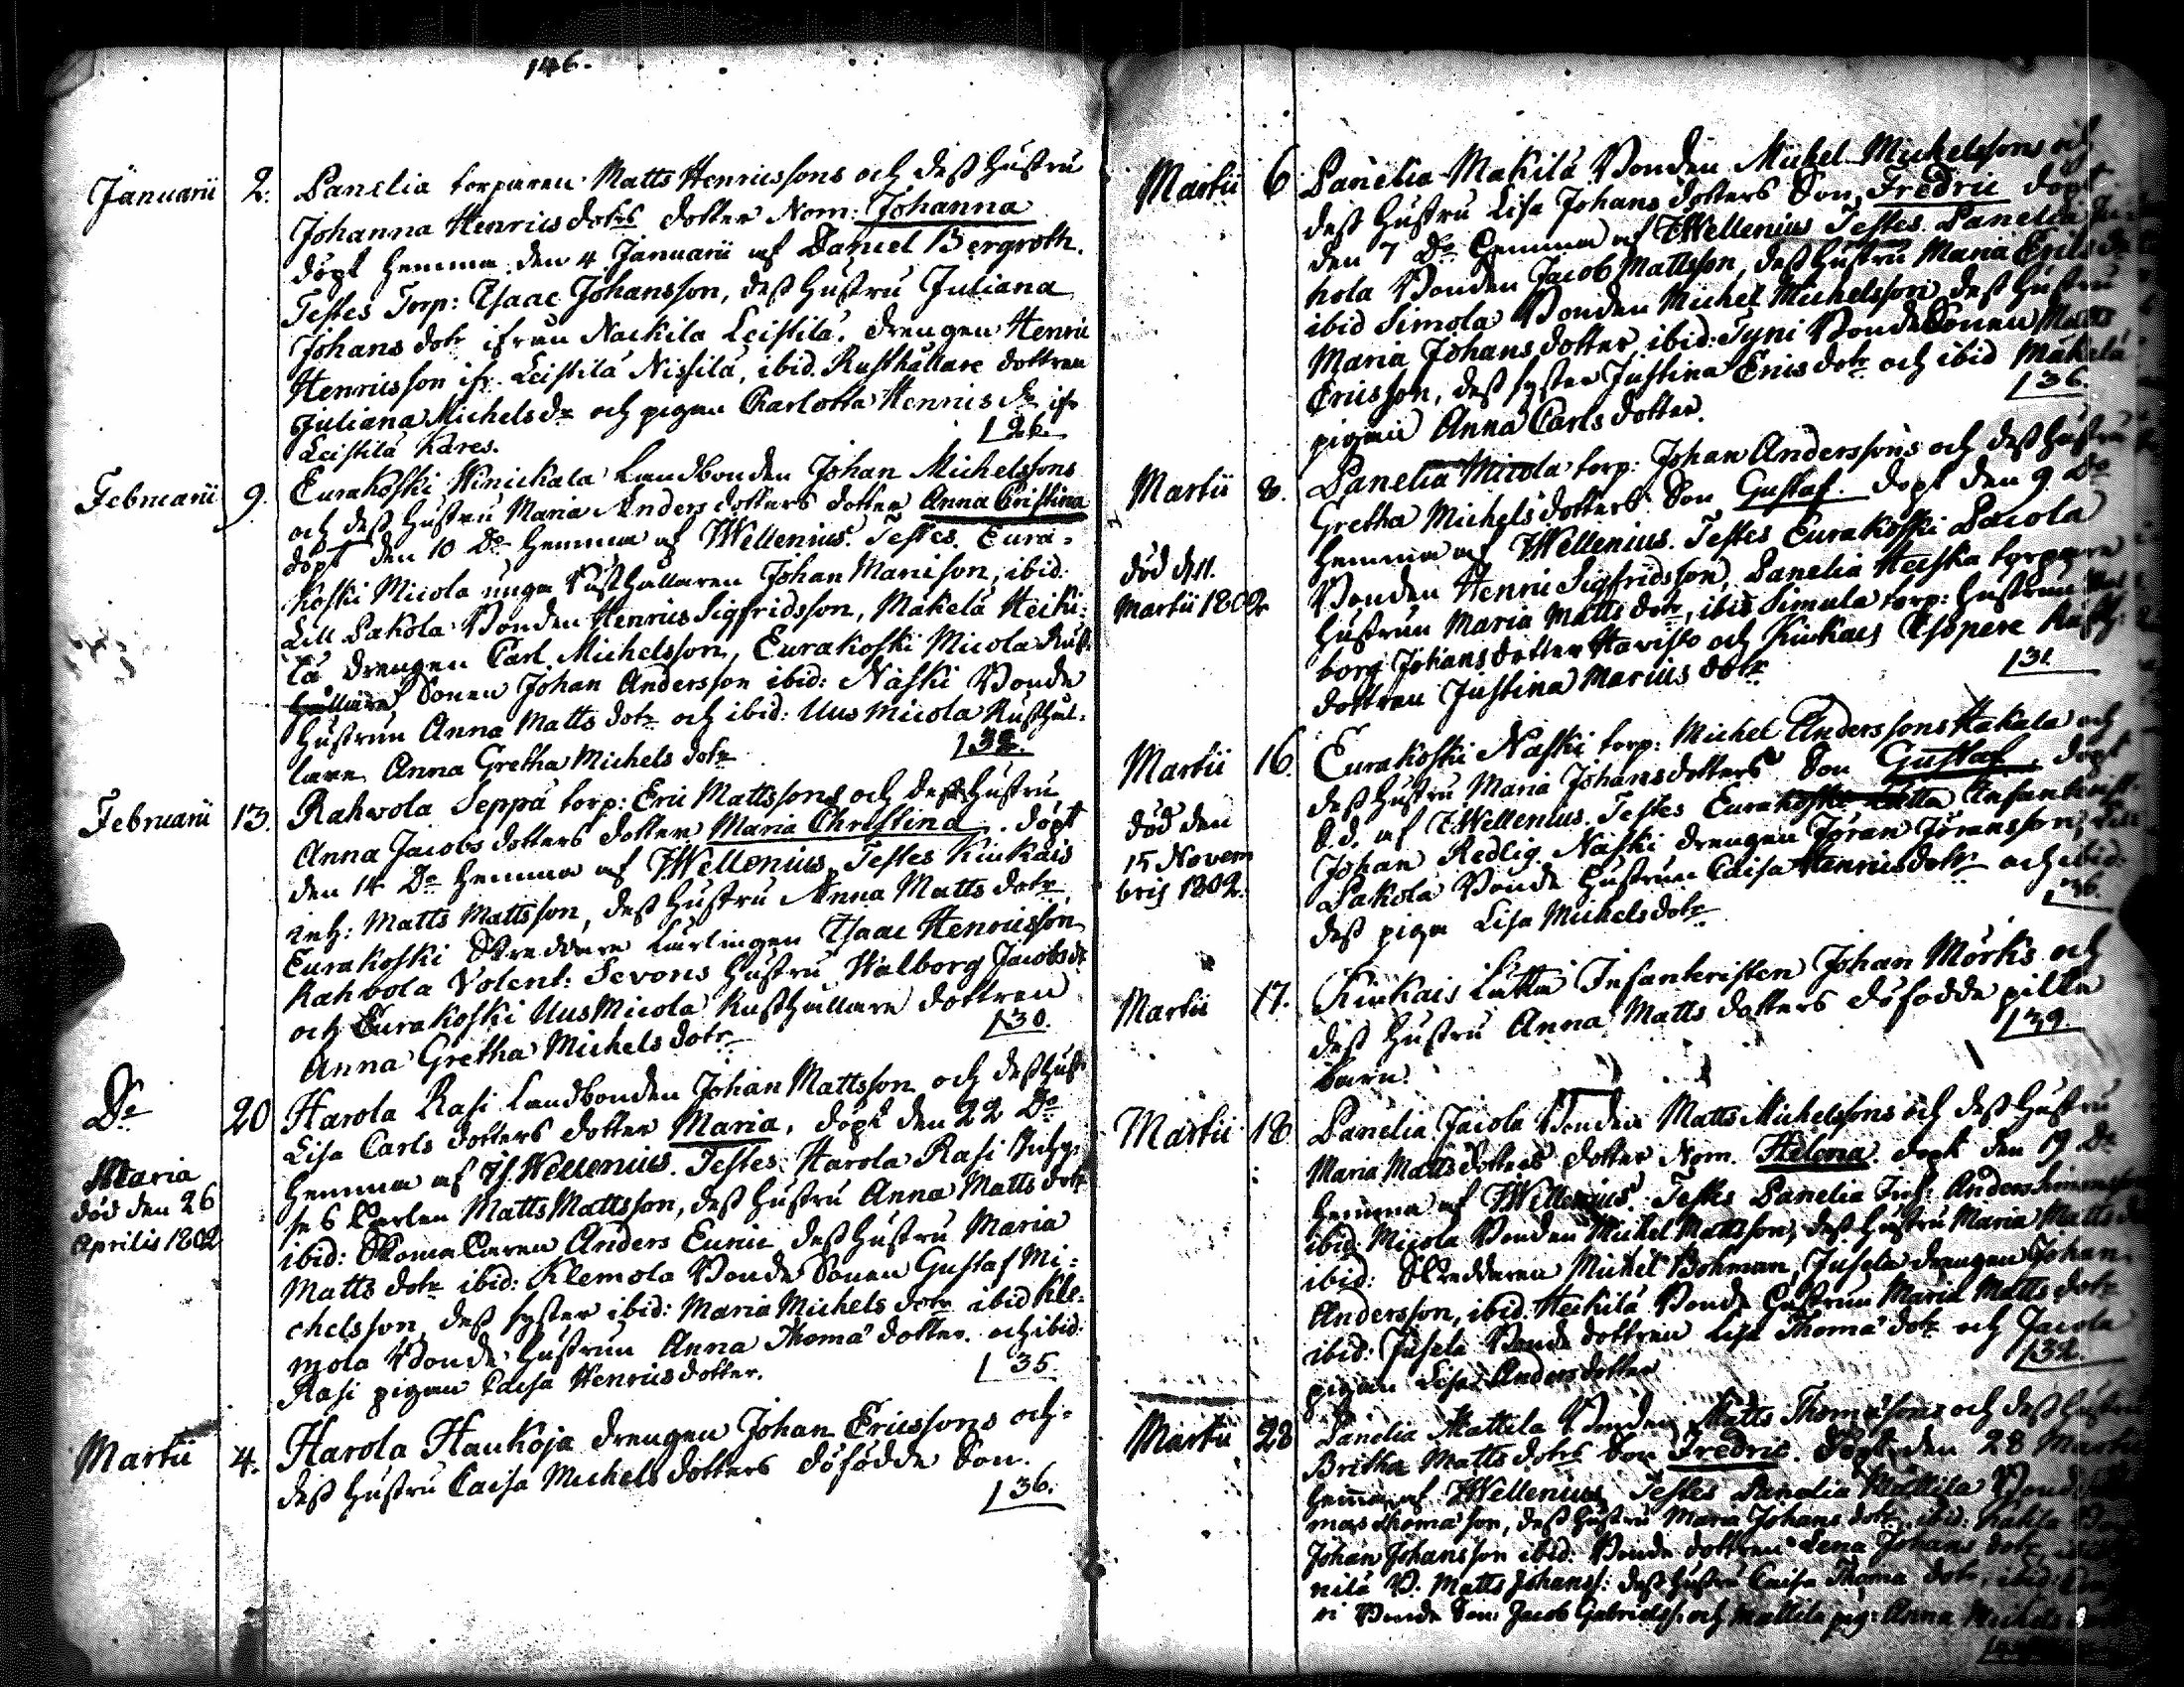 146.
Januarii 2. Panelia torparen Matts Henricssons och dess hustru
Johanna Henrics dotrs dotter Nom: Johanna
döpt hemma den 4 Januarii af Daniel Bergroth.
Testes Torp: Isaac Johansson, dess hustru Juliana
Johans dotr ifrån Nackila Leistilä, drengen Henric
Henricsson ifr. Leistilä Nissilä, ibid. Rusthållare dottren
Juliana Michels dr och pigan Charlotta Henrics dr ifr
Leistilä Kares. 26.
Februarii 9. Eurakoski Hinickala Landbonden Johan Michelssons
och dess hustru Maria Anders dotters dotter Anna Cristina
döpt den 10 Do hemma af JWellenius. Testes. Eura-
koski Micola unga Rusthållaren Johan Marisson, ibid:
Lill Pakola Bonden Henric Sigfridsson, Mäkelä Heiki-
lä drengen Carl Michelsson, Eurakoski Micola Rust-
hållare Sonen Johan Andersson ibid: Naski Bonde
hustrun Anna Matts dotr och ibid: Uus Micola Rusthål-
lare Anna Gretha Michels dotr 32.
Februarii 13. Rahvola Seppä torp: Eric Mattssons och dess hustru
Anna Jacobs dotters dotter Maria Christina. döpt
den 14 Do hemma af JWellenius. Testes Kiukais
inh: Matts Mattsson, dess hustru Anna Matts dotr,
Eurakoski Skreddare Lärlingen Isaac Henricsson
Rahvola Volent: Sevons hustru Walborg Jacobs dr
och Eurakoski Uus Micola Rusthållare dottren
Anna Gretha Michels dotr 30.
Do 20 Harola Rasi Landbonden Johan Mattsson och dess hust
Lisa Carls dotters dotter Maria, döpt den 22 Do
hemma af JWellenius. Testes. Harola Rasi
Matts Mattsson, dess hustru Anna Matts dotr
Maria
död den 26
Aprilis 1802
ibid: Skomakaren Anders Eurin dess hustru Maria
Matts dotr ibid: Klemola Bonde Sonen Gustaf Mi-
chelsson, dess syster ibid: Maria Michels dotr ibid Kle-
mola Bonde hustrun Anna Thoma dotter och ibid:
Rasi pigan Caisa Henricsdotter. 35.
Martii 4. Harola Haukoja drengen Johan Ericssons och
dess hustru Caisa Michels dotters döfödde Son.
36.
Martii 6 Panelia Makila Bonden Michel Michelssons och
dess hustru Lisa Johans dotters Son Fredric döpt
den 7 Do hemma af JWellenius Testes Panelia
hola Bonden Jacob Mattsson, dess hustru Maria Erics dr
ibid Simola Bonden Michel Michelsson dess hustru
Maria Johans dotter ibid: Tyni Bonde Sonen Matts
Ericsson, dess syster Justina Erics dotr och ibid Mäkelä
pigan Anna Carls dotter. 36.
Martii 8. Panelia Micola torp: Johan Anderssons och dess hustru
Gretha Michels dotters Son Gustaf. döpt den 9 Do
hemma af JWellenius. Testes Eurakoski Pacola
död d. 11.
Martii 1802
Bonden Henric Sigfridsson, Panelia Heiska torpare
hustrun Maria Matts dotr, ibid Simula torp: hustrun
borg Johans dotter Haristo och Kiukais Isopere Rusth:
dottren Justina Marius dotr 31.
Martii 16. Eurakoski Naski torp: Michel Anderssons Hakala och
dess hustru Maria Johansdotters Son Gustaf, döpt
d.d. af JWellenius. Testes Eurakoski Infanterist-
död den
15 Novem
bris 1802.
Johan Redlig Naski drengen Jöran Jöransson, Lill
Pakola Bonde hustrun Caisa Henricsdotr och ibid:
dess piga Lisa Michels dotr 36.
Martii 17. Kiukais Lutta Infanteristen Johan Mörks och
dess hustru Anna Matts dotters döfödde pilte
barn. 39.
Martii 18 Panelia Jacola Bonden Matts Michelssons och dess hustru
Maria Matts dotters dotter Nom. Helena. döpt den 19 Do
hemma af JWellenius. Testes Panelia Inh: Anders Simonsson
ibid: Micola Bonden Michel Mattsson, dess hustru Maria Matts
ibid: Skreddaren Michel Bohman, Jusela drengen Johan
Andersson, ibid Heikilä Bonde hustrun Maria Matts dotr
ibid: Jusela Bonde dottren Lisa Thoma dotr och Jacola
pigan Lisa Anders dotter 32.
Martii 28 Panelia Mattila Bonden Matts Thomassons och dess hustru
Britha Matts dotrs Son Fredric. döpt den 28 Martii
hemma af JWellenius Testes Panelia Mattila Bonde
mas Thomasson, dess hustru Maria Johans dotr, ibid:
Johan Johansson ibid: Bonde dottren Lena Johans dotr,
nilä B. Matts Johanss: dess hustru Caisa Thoma dotr, ibid:
ri Bonde Son Jacob Gabrielss: och Mattila pig: Anna Michels